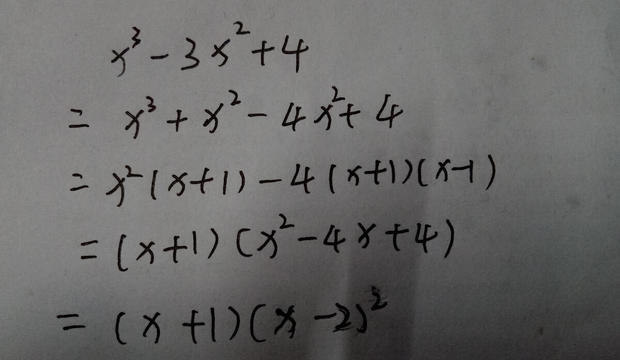 x³-3x²+4
= x³+x²-4x²+4
= x²(x+1)-4(x+1)(x-1)
= (x+1)(x²-4x+4)
= (x+1)(x-2)²